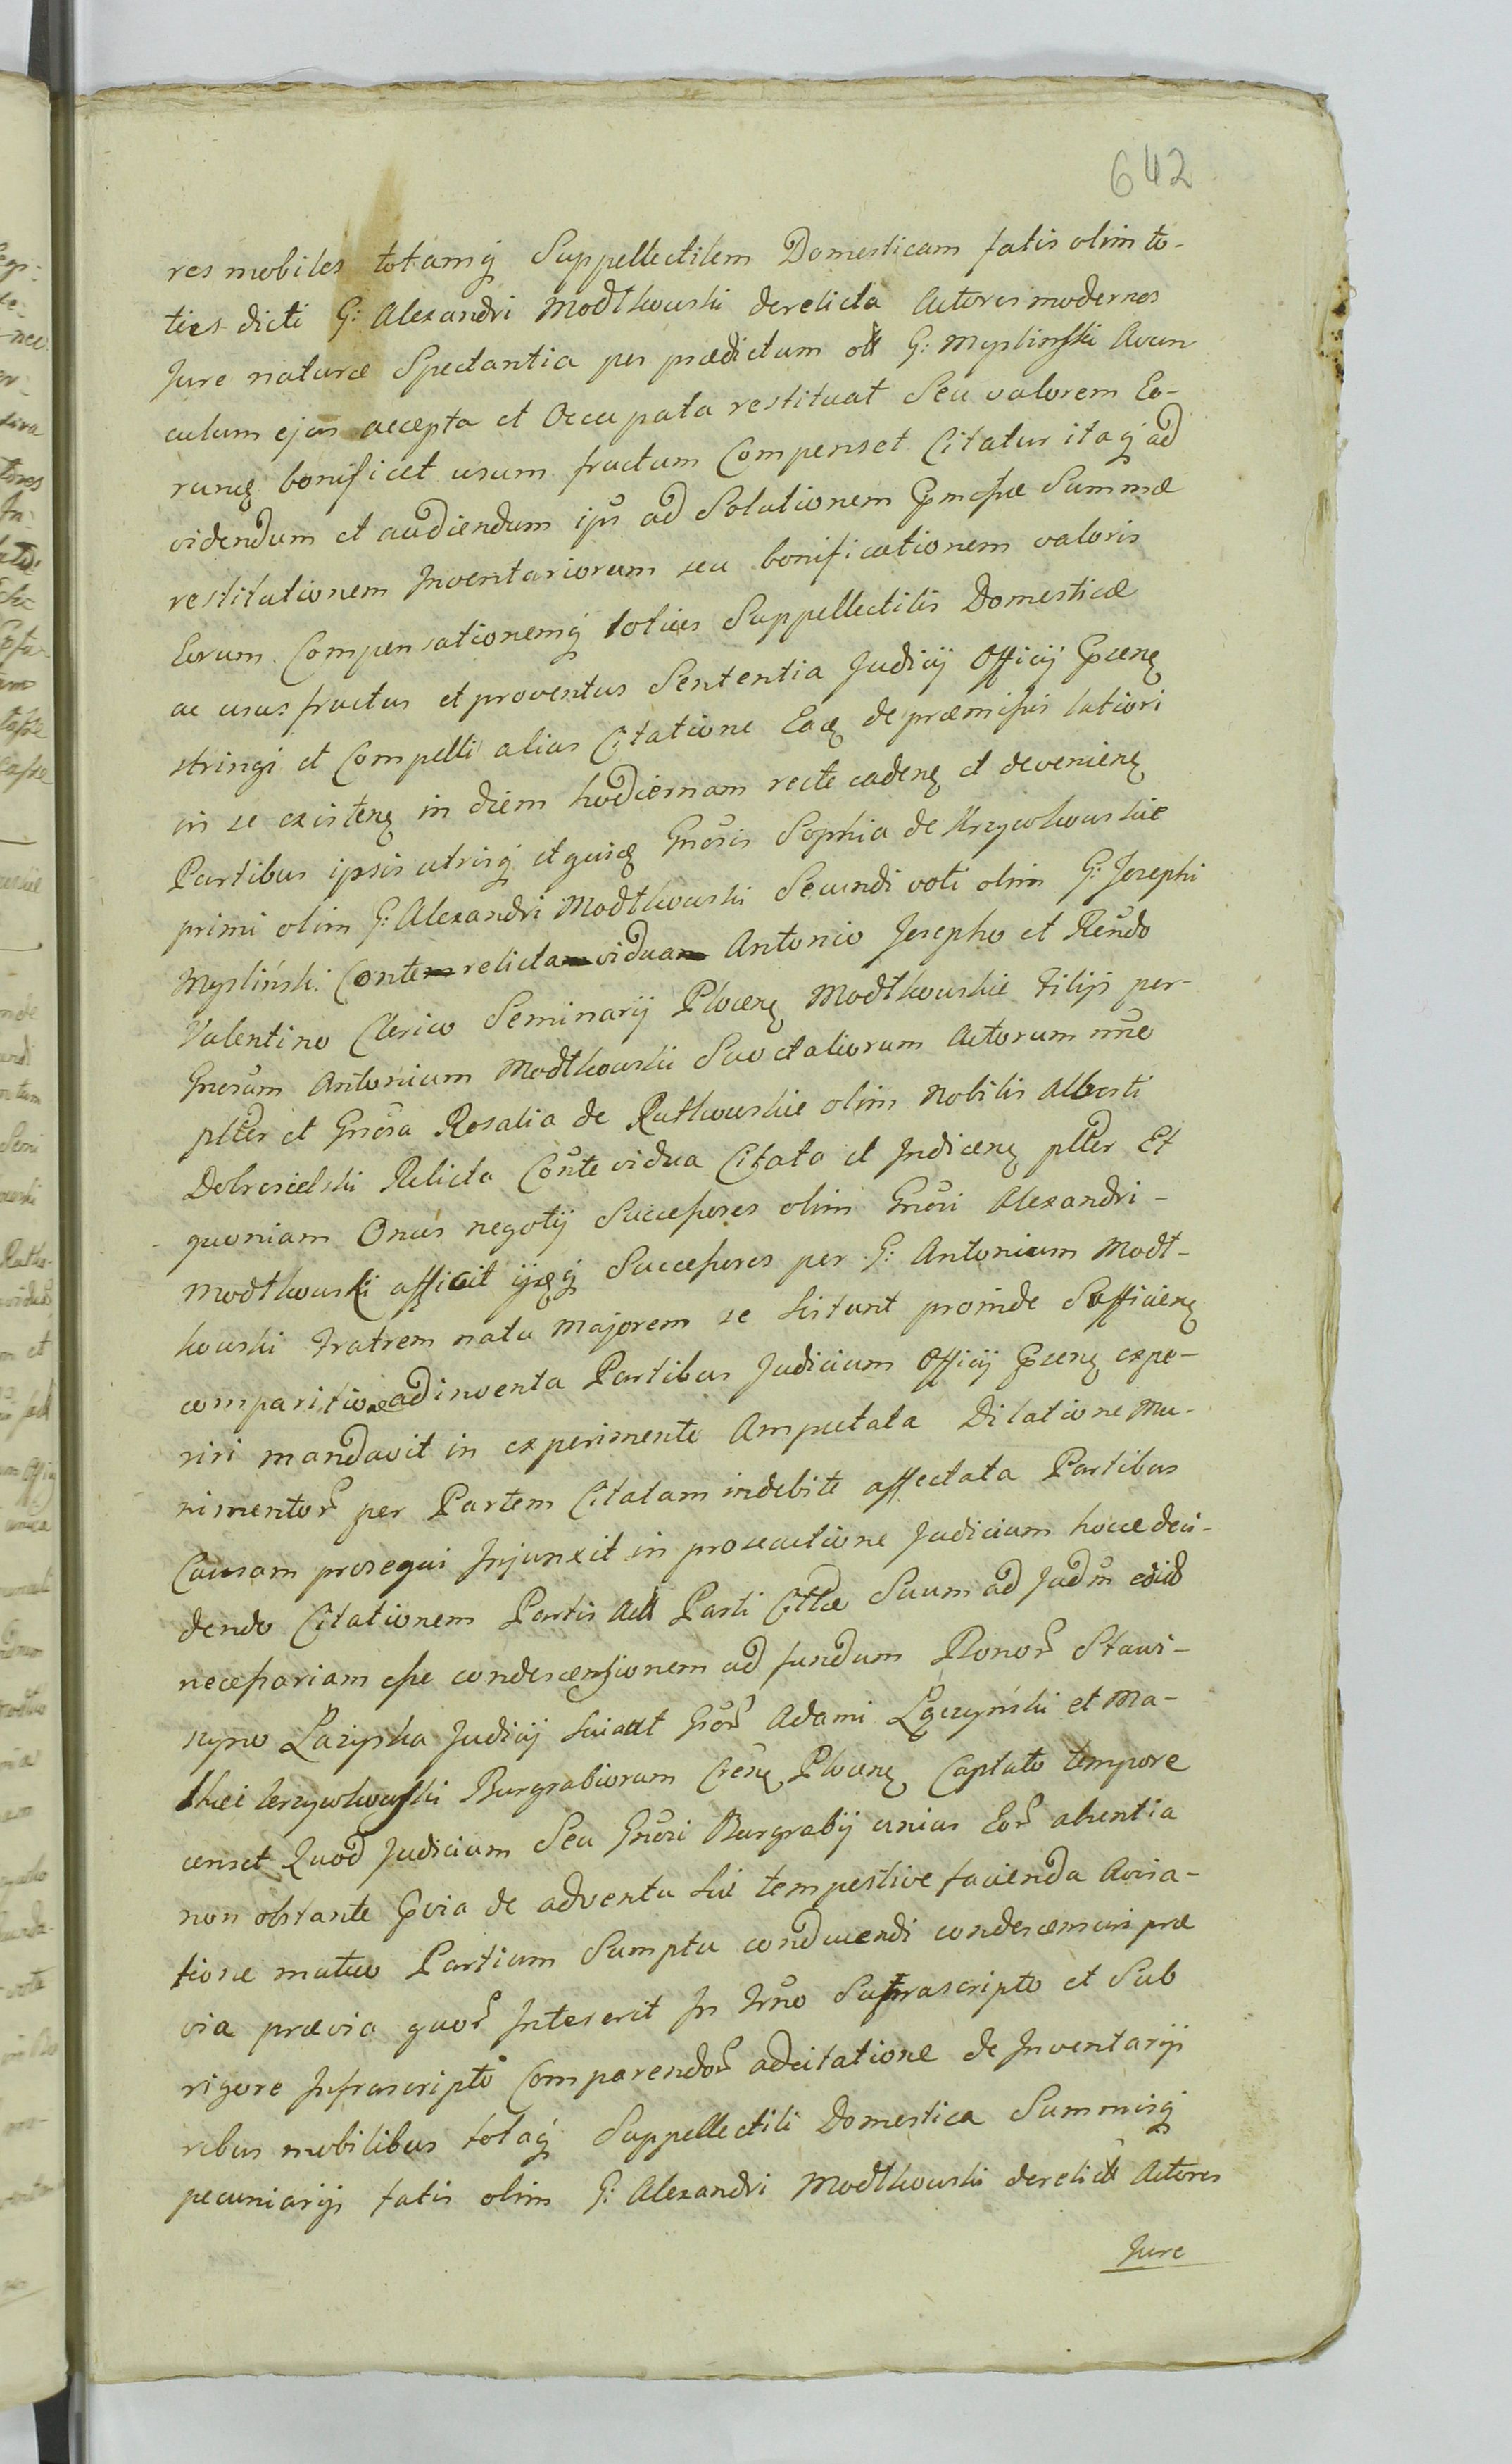 642
res mobiles totamq̨ Suppellectilem Domesticam fatis olim to-
ties dicti G: Alexandri Modtkowski derelicta Actores modernos
Jure naturæ Spectantia per prædictum oll G: Myslinski Avun
culum ejus accepta et Occupata restituat Seu valorem Eo-
rundȩ bonificet usum fructum Compenset Citatur itaq̨ ad
videndum et audiendum ips ad Solutionem Summæ
restitutionem Inventariorum seu bonificationem valoris
Eorum. Compensationemq̨ totius Suppellectilis Domesticæ
ac usus fructus et proventus Sententia Judicij Officij
stringi et Compelli alias Citatione Eaȩ de præmissis latiori
in se existenȩ in diem hodiernam recte cadenȩ et devenienȩ
Partibus ipsis utrisq̨ et quidȩ Gnosis Sophia de Krzywkowskie
primi olim G: Alexandri Modtkowski Secundi voti olim G: Josephi
Mysliński. Conte relicta vidua Antonio Josepho et Rendo
Valentino Clerico Seminarij Plocenȩ Modtkowskie Filijs per-
Gnosum Antonium Modtkowski Suo et aliorum Actorum nñe
plter et Gnosa Rosalia de Rutkowskie olim Nobilis Alberti
Dobrosielski Relicta Conte vidua Citata et Indicenȩ plter Et
quoniam Onus negotij Successores olim Gnosi Alexandri-
Modtkowski afficit ijsȩq̨ Successores per G: Antonium Modt-
kowski Fratrem natu Majorem se sistunt proinde Sufficienȩ
comparitione adinventa Partibus Judicium Officij expe-
riri mandavit in experimento Amputata Dilatione Mu-
nimentor per Partem Citatam indebite affectata Partibus
Causam prosequi Injunxit in prosecutione Judicium hocce deci-
dendo Citationem Partis Act Parti Cittæ Suum ad Judm edit
necessariam esse condescensionem ad fundum Bonor Stawi-
szyno Łazyska Judicij sui aut Gnor Adami Łączyński et Ma-
thei Krzywkowski Burgrabiorum Crenȩ Plocenȩ Captato tempore
censet Quod Judicium Seu Gnosi Burgrabij unius Eor absentia
non obstante de adventu sui tempestive facienda Avisa-
tione mutuo Partium Sumptu conducendi condescensuri præ
via prævia quor Intererit In Trño Suprascripto et Sub
rigore Infrascripto Comparendor adcitatione de Inventarijs
rebus mobilibus totaq̨ Suppellectili Domestica Summisq̨
pecuniarijs fatis olim G: Alexandri Modtkowski derelict Actores
Jure